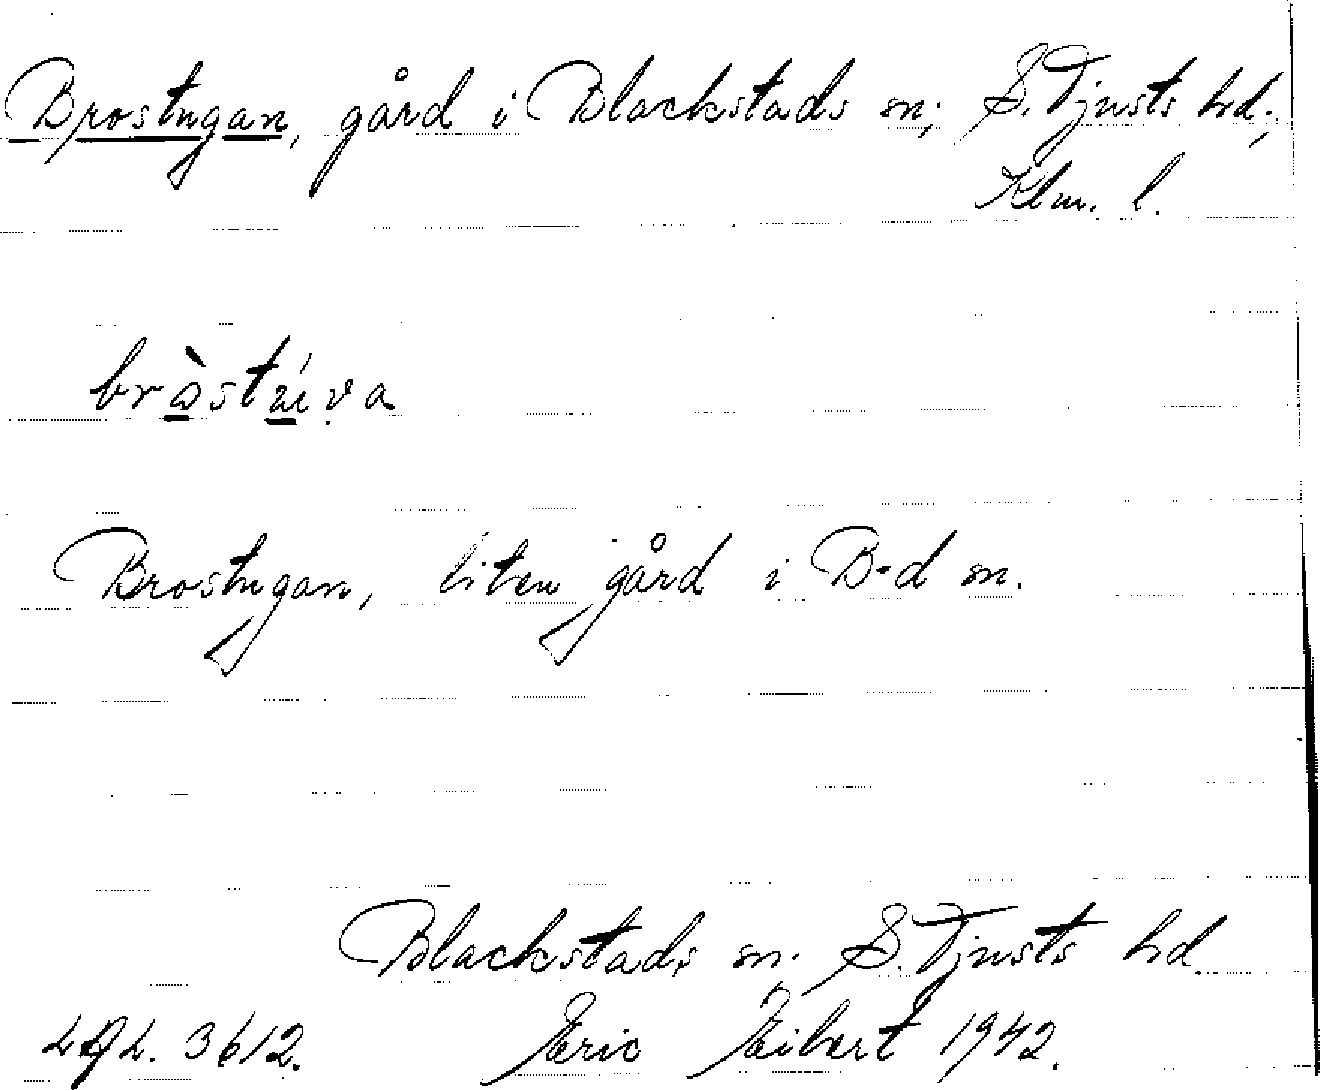 Brostugan, gård i Blackstads sn; S. Tjusts hd;
Klm. l.
Brostugan, liten gård i B-d sn.
Blackstads sn. S. Tjusts hd
3612. Eric Eibert 1942.